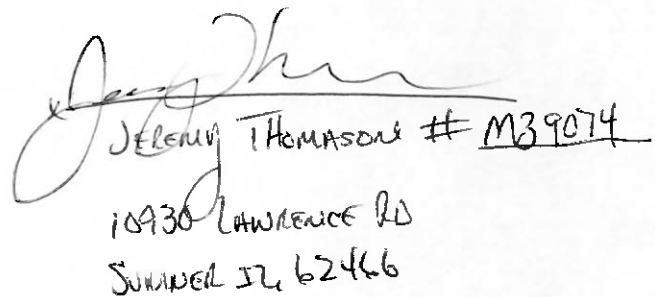 JEREMY THOMASON # M39074
10930 LAWRENCE RD
SUMNER IL, 62466